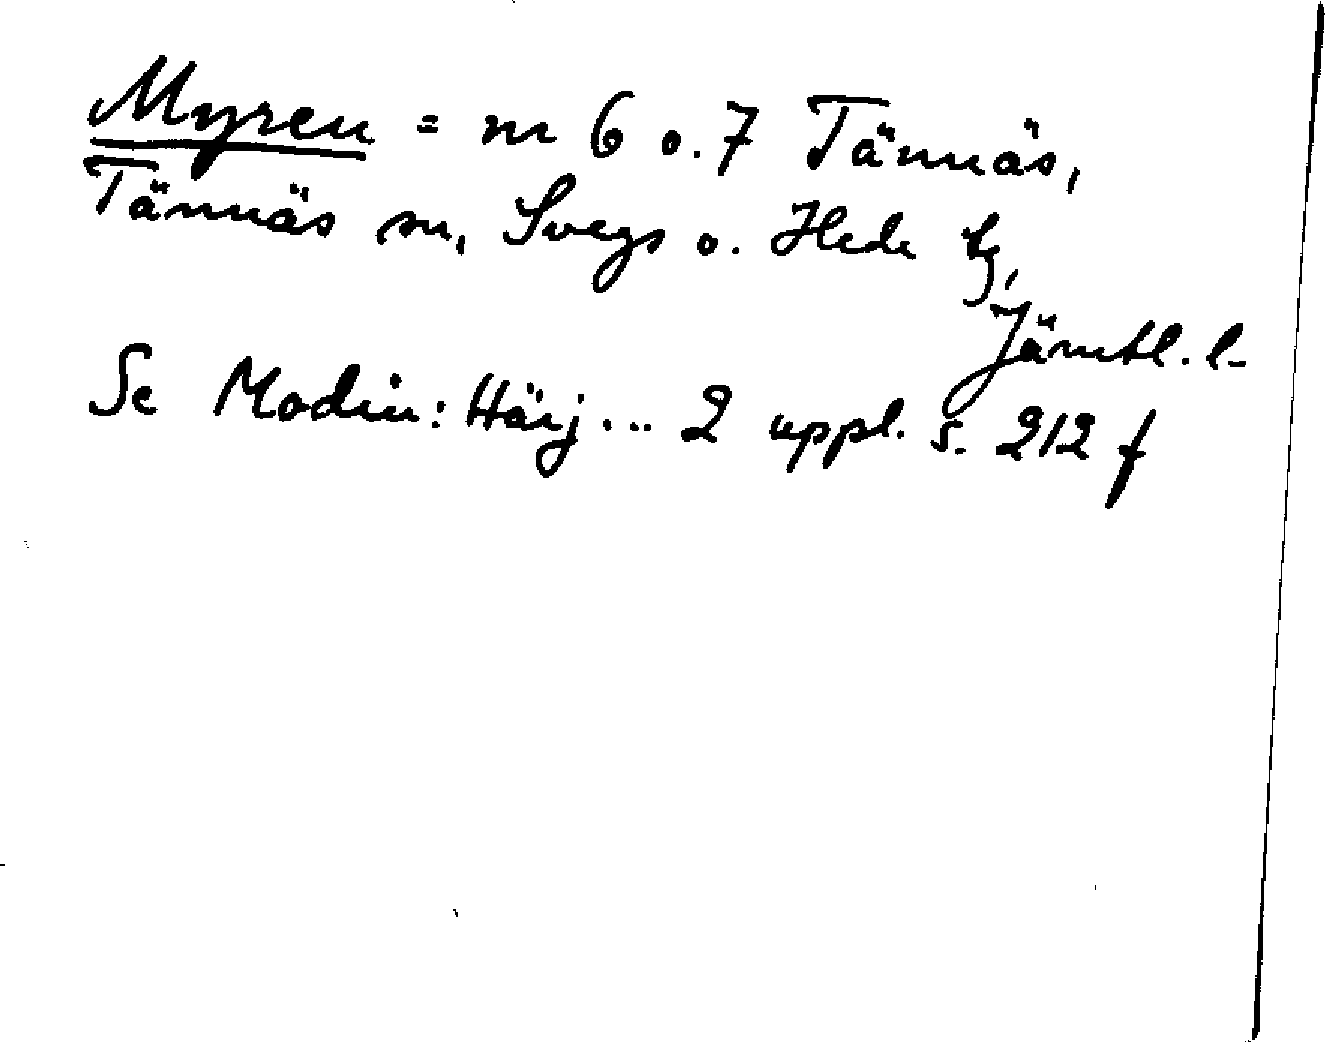 Myren = nr 6 o. 7 Tännäs,
Tännäs sn, Svegs o. Hede tg,
Jämtl. l.
Se Modin: Härj... 2 uppl. s. 212 f